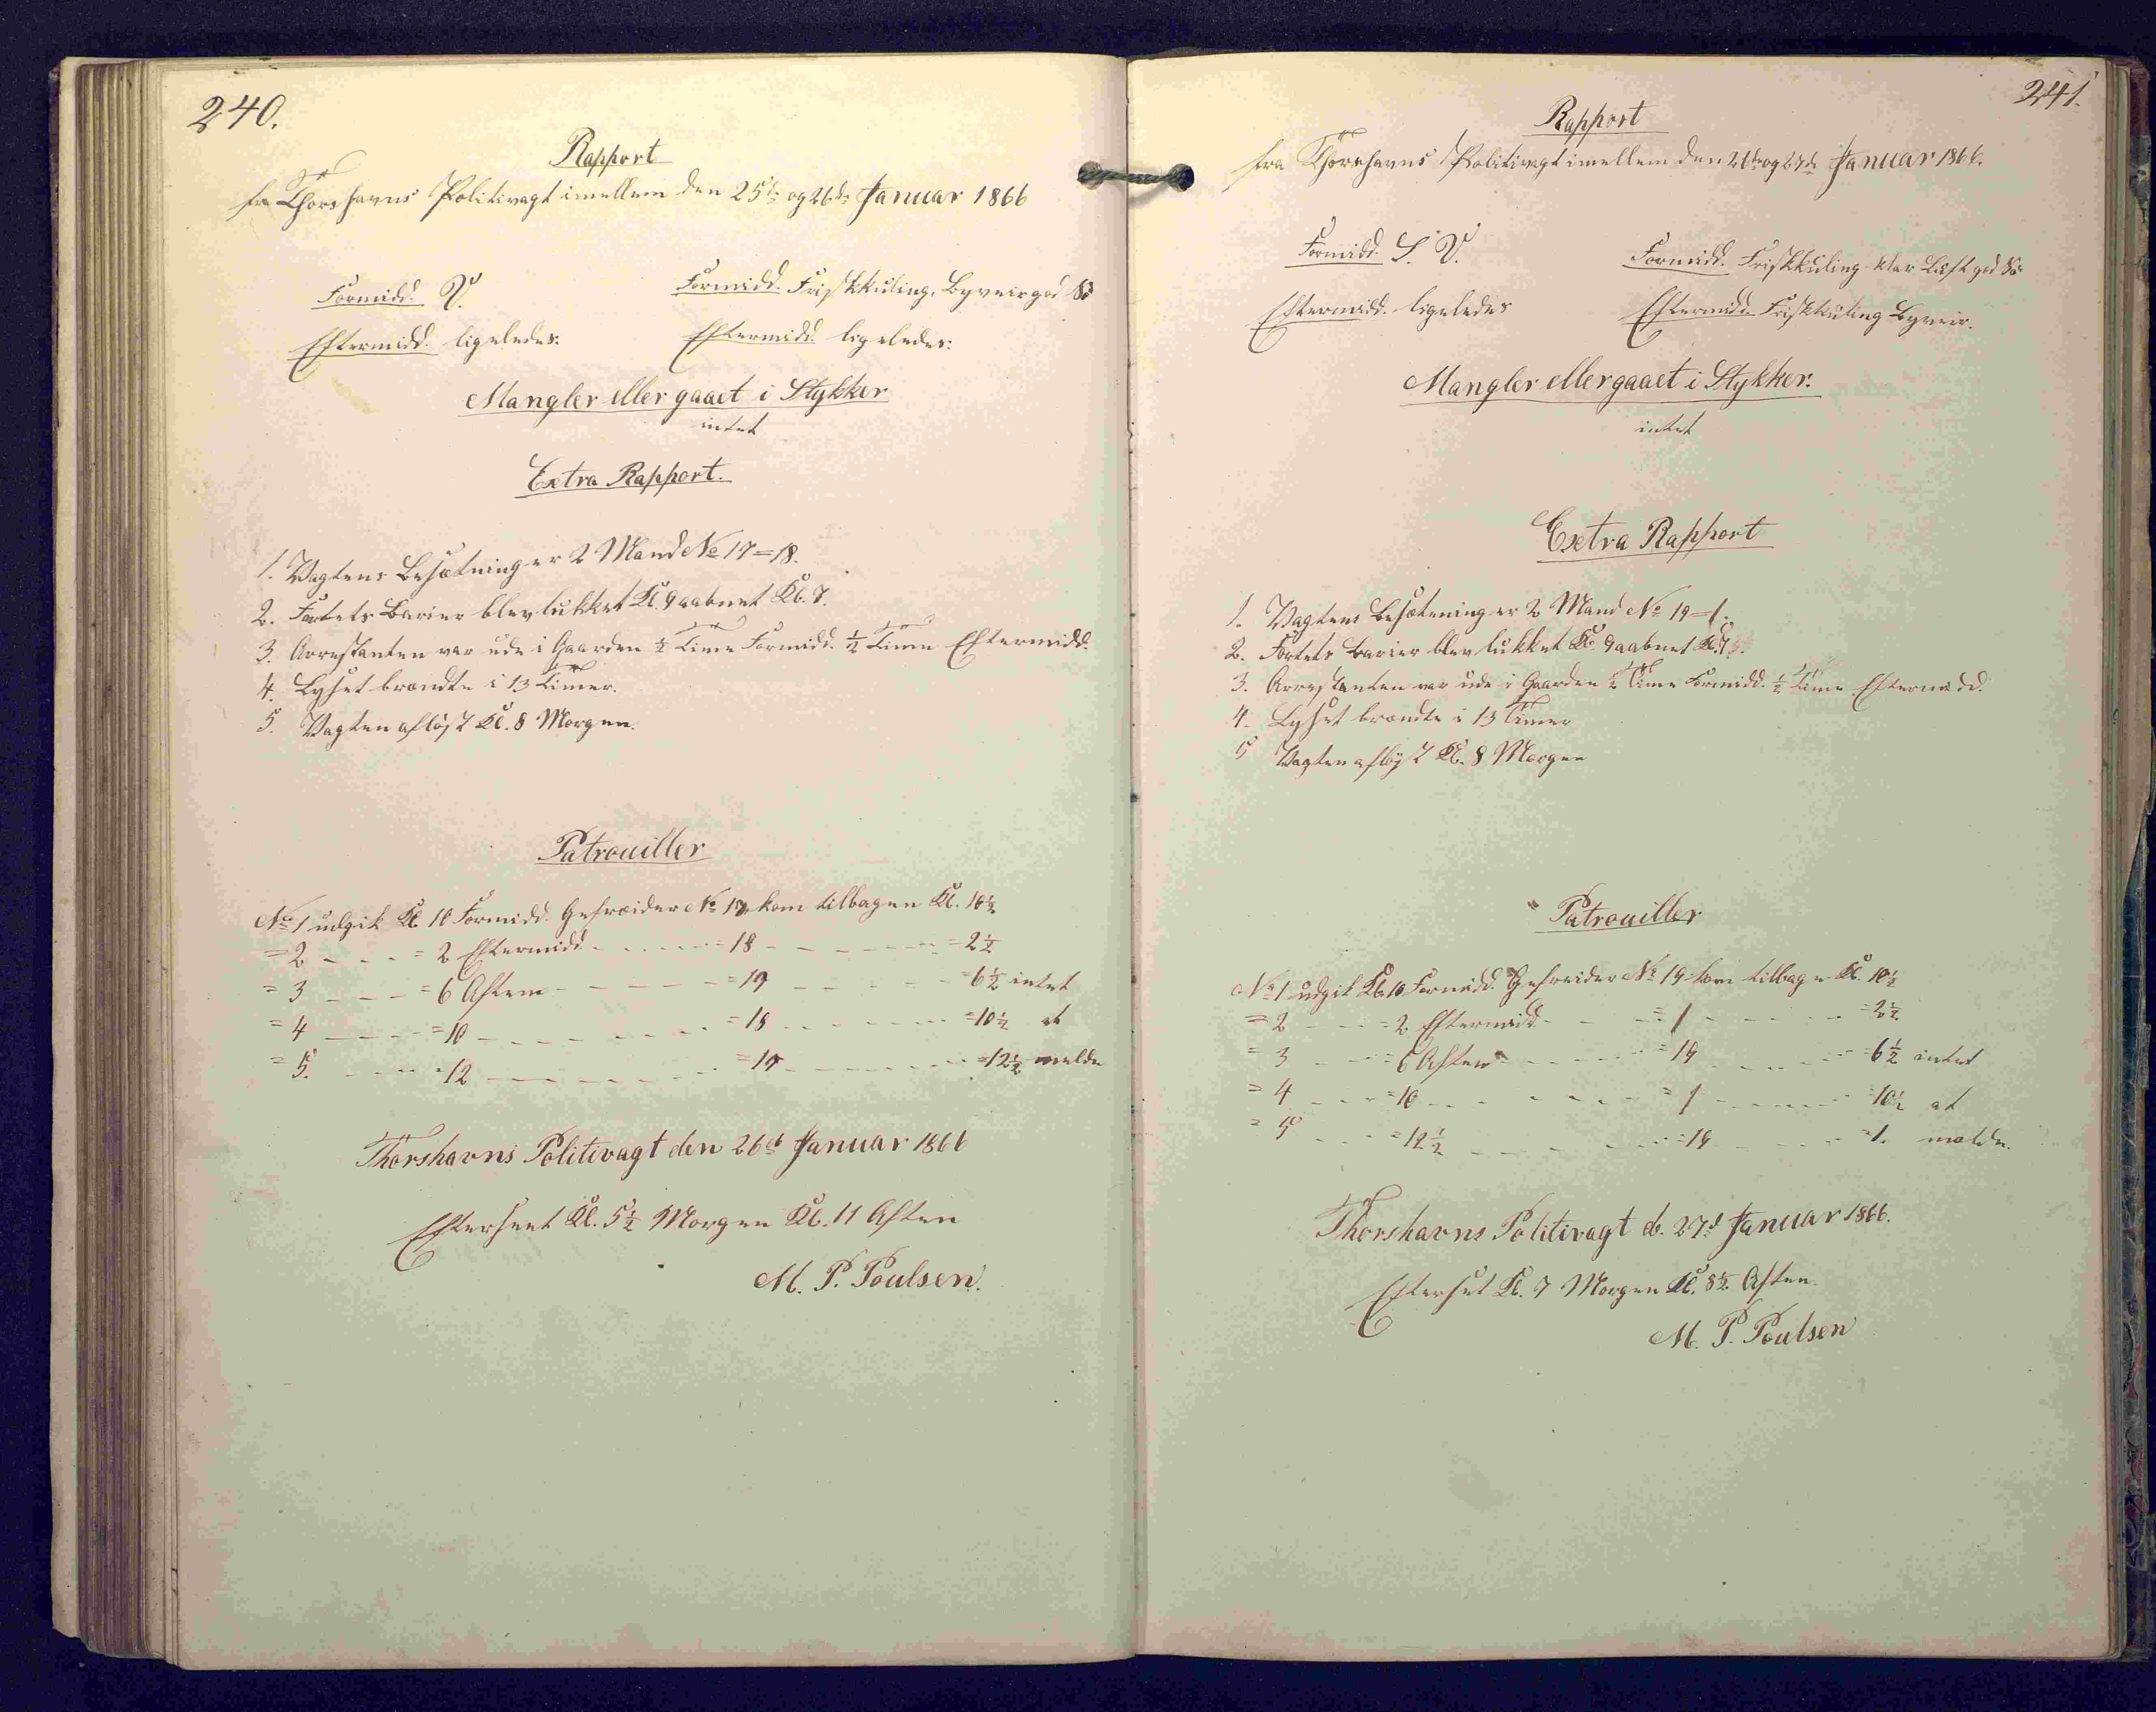 240.
Rapport
fra Thorshavns Politivagt imellem den 25de og 26de Januar 1866
Formidd. V. Formidd. Friskkuling, Byveir god Sø
Eftermidd. ligeledes. Eftermidd. ligeledes.
Mangler eller gaaet i Stykker
intet
Extra Rapport.
1. Vagtens Besætning er 2 Mand No 17=18.
2. Fortets Barier blev lukket Kl. 9 aabnet Kl. 7.
3. Arrestanten var ude i Gaarden ½ Time Formidd. ½ Time Eftermidd.
4. Lyset brændte i 13 Timer.
5. Vagten afløst Kl. 8 Morgen.
Patrouiller
No 1 udgik Kl. 10 Formidd. Gefreider No 17 kom tilbagen Kl. 10½
= 2 - - - = 2 Eftermidd - - - = 18 - - - = 2½
= 3 - - - = 6 Aften - - - = 17 - - - = 6½ intet
= 4 - - - = 10 - - - = 18 - - - = 10½ at
= 5. - - - = 12 - - - = 17 - - - = 12½ melde
Thorshavns Politivagt den 26de Januar 1866
Efterseet Kl. 5½ Morgen Kl. 11 Aften
M. P. Poulsen.
241.
Rapport
fra Thorshavns Politivagt imellem den 26de og 27de Januar 1866.
Formidd. S. V. Formidd. Friskkuling klar Luft god Sø
Eftermidd. ligeledes Eftermidd. Friskkuling Byveir.
Mangler eller gaaet i Stykker.
intet
Extra Rapport
1. Vagtens Besætening er 2 Mand No 19=1.
2. Fortets Barier blev lukket Kl. 9 aabnet Kl. 7.
3. Arrestanten var ude i Gaarden ½ Time Formidd. ½ Time Eftermidd.
4. Lyset brændte i 13 Timer
5 Vagten afløst Kl. 8 Morgen
Patrouiller
No 1 udgik Kl. 10 Formidd. Gefreider No 19 kom tilbage Kl. 10½
= 2 - - - = 2 Eftermidd - - - = 1 - - - = 2½
= 3 - - - = 6 Aften - - - = 19 - - - = 6½ intet
= 4 - - - = 10 - - - = 1 - - - = 10½ at
= 5 - - - = 12½ - - - = 19 - - - = 1. melde.
Thorshavns Politivagt d. 27d Januar 1866.
Efterset Kl. 7 Morgen Kl. 8½ Aften.
M. P. Poulsen